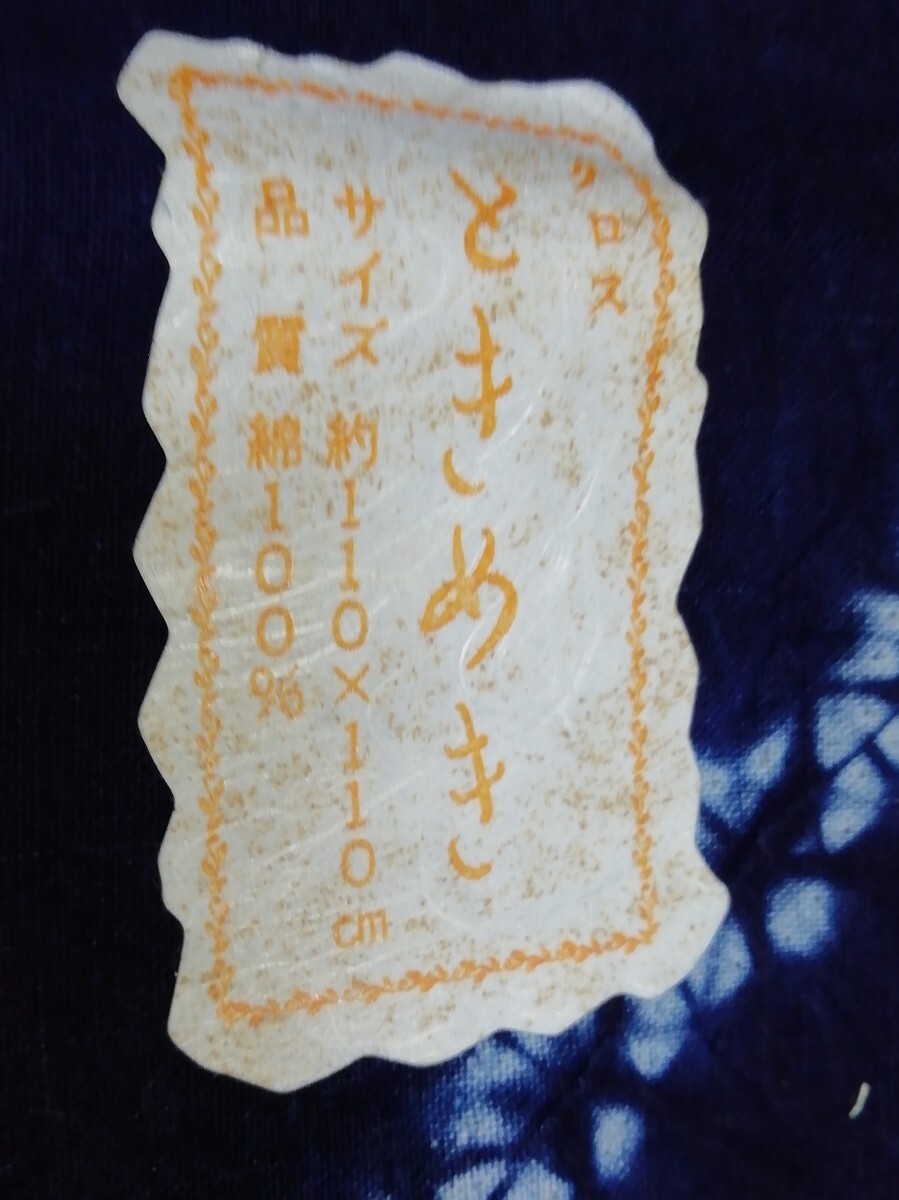 クロス
ときめき
サイズ 約110×110cm
品質 綿100%